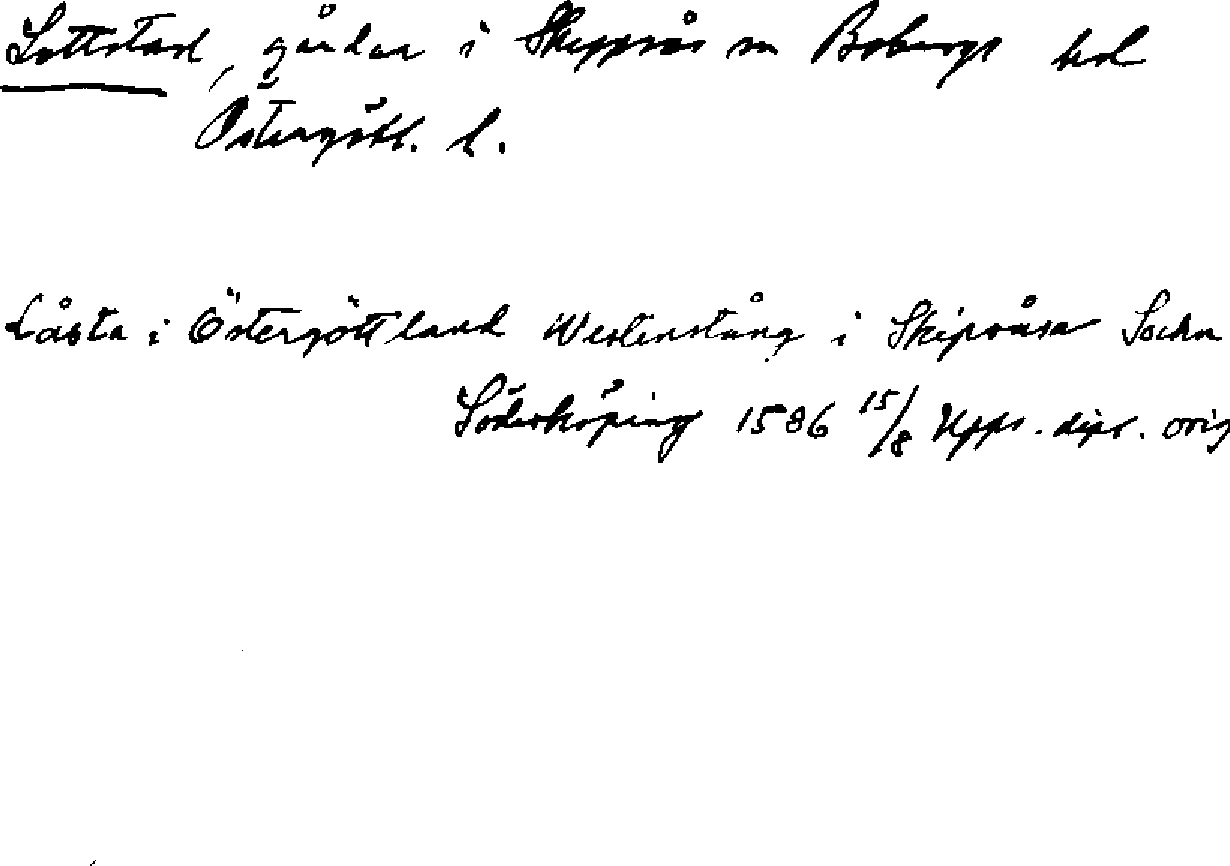 Lottstad, gårdar i Skeppsås sn Bobergs hd
Östergötl. l.
Låsta i Östergöttland Westenstång i Skipsåsa Sockn
Söderköping 1586 15/8 Upps. dipl. orig